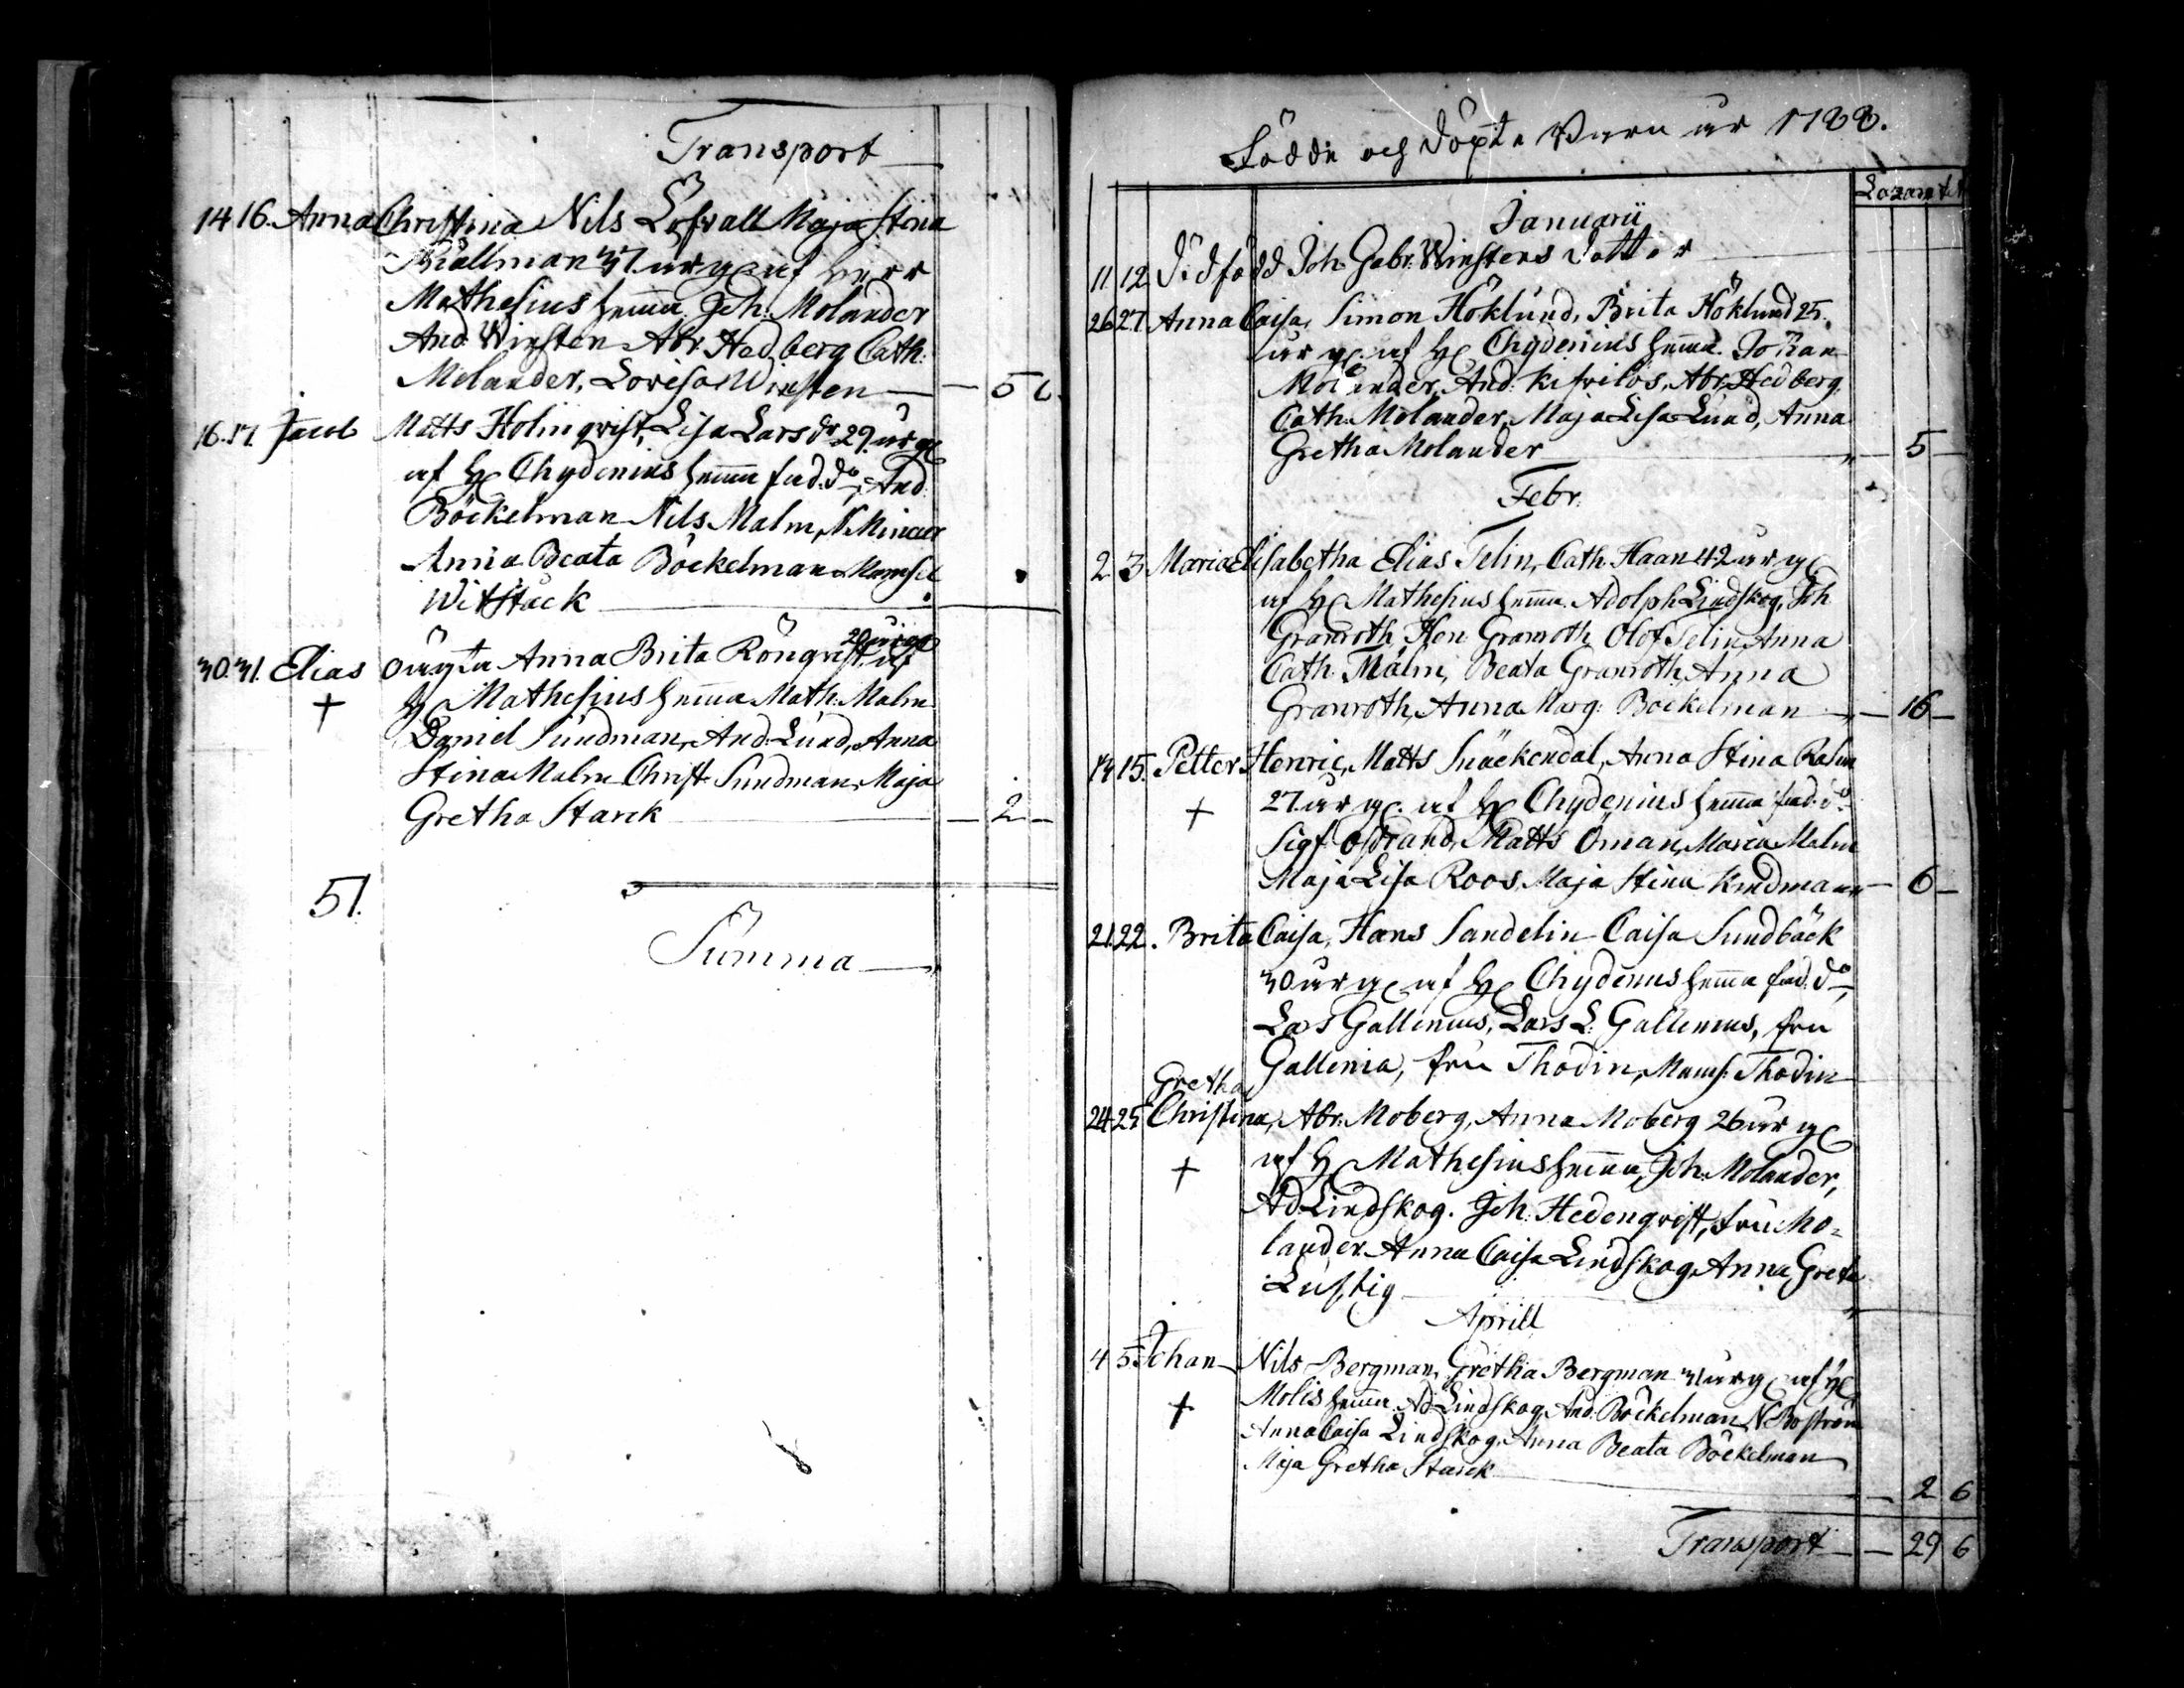 Transport
14 16. Anna Christina Nils Löfvall Maja Stina
Källman 37 år gl af Herr
Mathesius hemma. Joh. Molander
And. Winsten Abr. Hedberg Cath.
Molander, Lovisa Winsten — 5
16. 17. Jacob Matts Holmqvist, Lisa Lars dr 29 år gl
af H Chydenius hemma fad. do, And.
Böckelman Nils Malm, N.
Anna Beata Böckelman Mamsel
Witstock
30. 31. Elias oägta Anna Brita Rönqvist 20 år gl af
H Mathesius hemma Math. Malm
Daniel Sundman, And. Lund, Anna
Stina Malm Christ. Sundman, Maja
Gretha Starck — 2 —
51.
Summa
Födde och döpte Barn år 1788.
Lazaret
Januarii
11 12 Dödfödd Joh. Gabr. Winstens Dotter
26 27 Anna Caisa, Simon Höklund, Brita Höklund 25.
år gl. af H Chydenius hemma. Johan
Molander, And. Abr. Hedberg.
Cath. Molander, Maja Lisa Lund, Anna
Gretha Molander — 5 —
Febr.
2 3 Maria Elisabetha Elias Telin, Cath. Haan 42 år gl
af H Mathesius hemma. Adolph Lindskog, Joh
Granroth, Hen Granroth Olof Telin Anna
Cath. Malm, Beata Granroth, Anna
Granroth, Anna Marg: Böckelman — 16 —
14 15. Petter Henric, Matts Snäckendal, Anna Stina Rahm
27 år gl. af H Chydenius hemma fad. do
Sigf. Östrand, Matts Öman, Maria Malm
Maja Lisa Roos, Maja Stina Kindman — 6 —
21 22. Brita Caisa, Hans Sandelin Caisa Sundbäck
30 år gl af H Chydenius hemma fad. do
Lars Gallenius, Lars L. Gallenius, fru
Gallenia, fru Thodin, Mams. Thodin
Gretha
24 25 Christina, Abr. Moberg, Anna Moberg 26 år gl
af H Mathesius hemma, Joh. Molander,
Ad. Lindskog. Joh. Hedenqvist, fru Mo=
lander Anna Caisa Lindskog, Anna Greta
Lustig
Aprill
4 5 Johan Nils Bergman, Gretha Bergman 31 år gl af H
Molis hemma. Ad Lindskog, And. Böckelman N. Boström
Anna Caisa Lindskog, Anna Beata Böckelman
Maja Gretha Starck — 2 6
Transport — 29 6